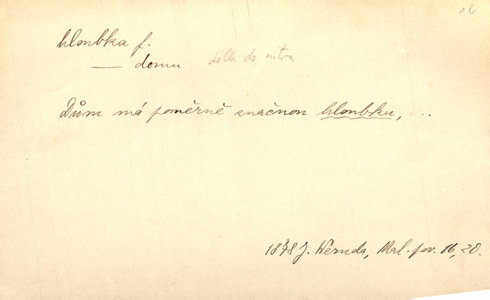 hloubka f.
— domu délka do nitra
Dům má poměrně značnou hloubku, ...
1878 J. Neruda, Mal. pov. 16, 20.